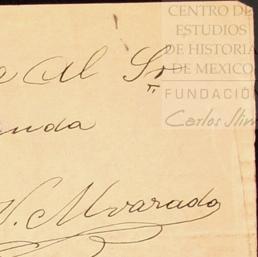 CENTRO DE
ESTUDIOS
DE HISTORIA
DE MEXICO
FUNDACIÓN
Carlos Slim
Al Sr
V. Alvarado